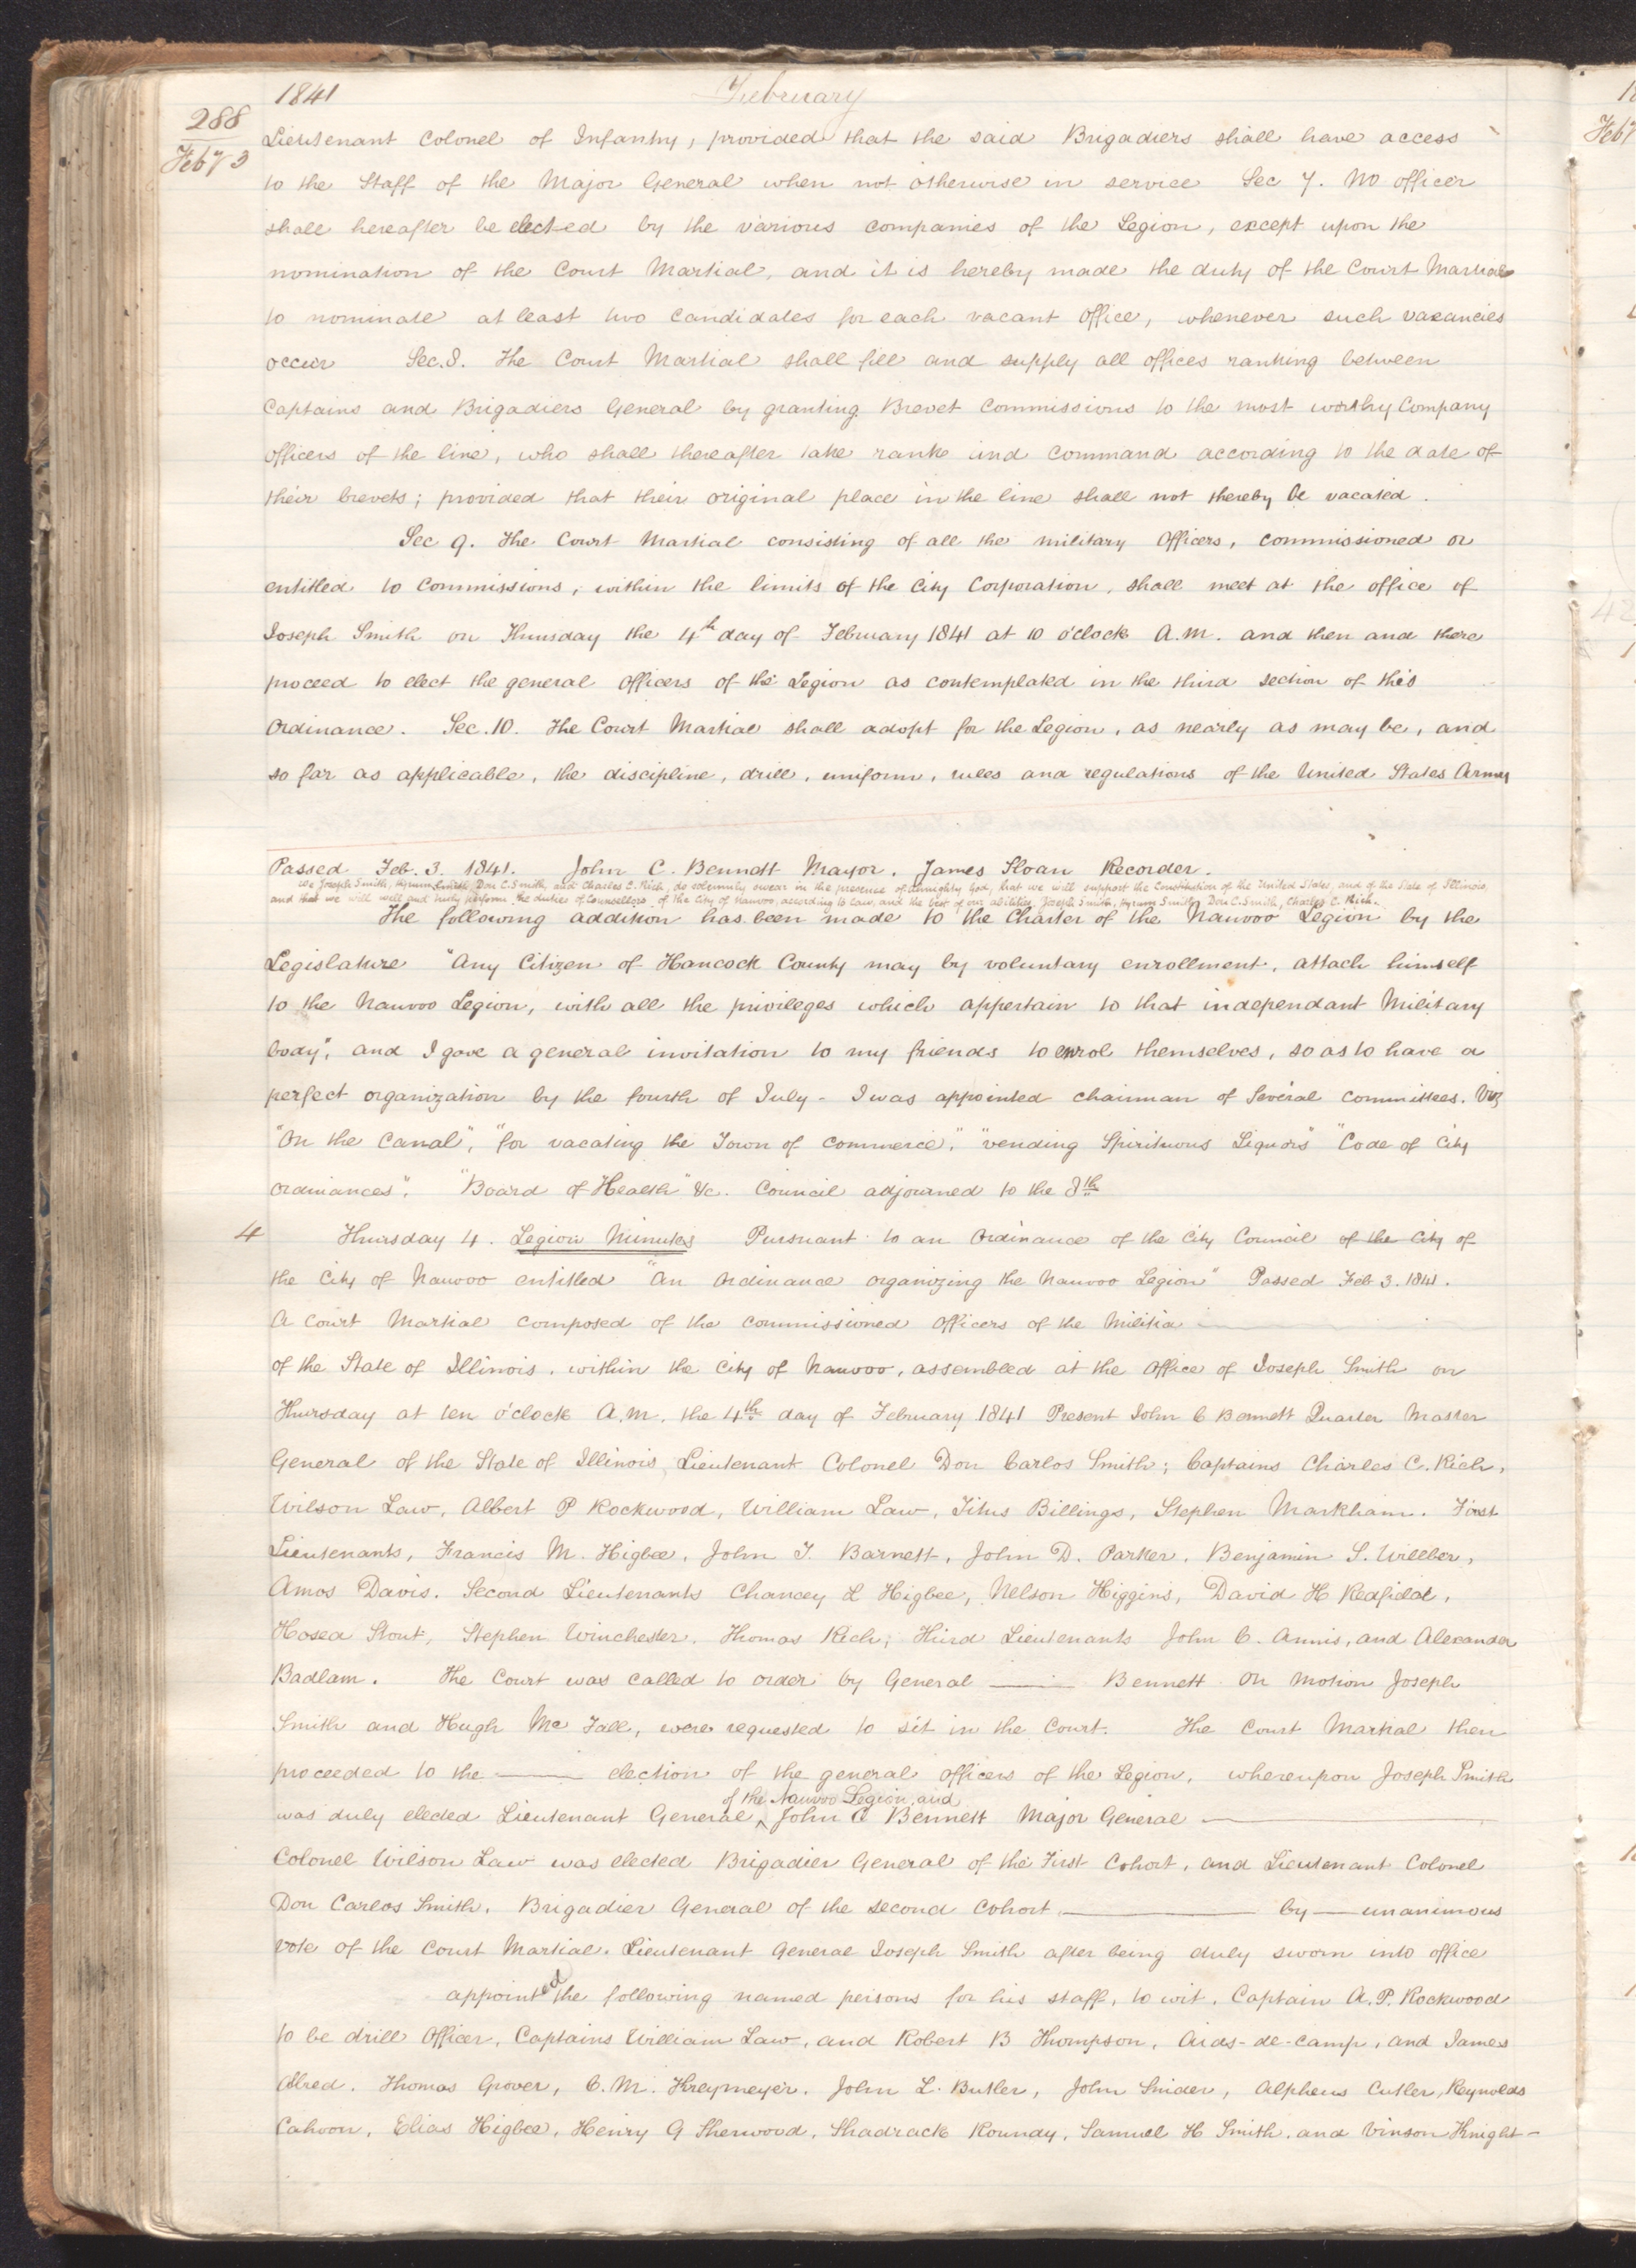 1841 February
288
Feby 3
Lieutenant Colonel of Infantry, provided that the said Brigadiers shall have access
to the Staff of the Major General when not otherwise in service Sec 7. No officer
shall hereafter be elected by the various companies of the Legion, except upon the
nomination of the Court Martial, and it is hereby made the duty of the Court Martial
to nominate at least two candidates for each vacant office, whenever such vacancies
occur Sec. 8. The Court Martial shall fill and supply all offices ranking between
Captains and Brigadiers General by granting Brevet Commissions to the most worthy Company
officers of the line, who shall thereafter take rank and command according to the date of
their brevets; provided that their original place in the line shall not thereby be vacated.
Sec 9. The Court Martial consisting of all the military Officers, commissioned or
entitled to commissions, within the limits of the City Corporation, shall meet at the office of
Joseph Smith on Thursday the 4th day of February 1841 at 10 o'clock A.M. and then and there
proceed to elect the general officers of the Legion as contemplated in the third section of this
Ordinance. Sec. 10. The Court Martial shall adopt for the Legion, as nearly as may be, and
so far as applicable, the discipline, drill, uniform, rules and regulations of the United States Army
Passed Feb. 3. 1841. John C. Bennett Mayor. James Sloan Recorder.
We Joseph Smith, Hyrum Smith, Don C. Smith, and Charles C. Rich, do solemnly swear in the presence of Almighty God, that we will support the Constitution of the United States, and of the State of Illinois,
and that we will well and truly perform the duties of Counsellors of the City of Nauvoo, according to law, and the best of our abilities. Joseph Smith, Hyrum Smith, Don C. Smith, Charles C. Rich.
The following addition has been made to the Charter of the Nauvoo Legion by the
Legislature "Any Citizen of Hancock County may by voluntary enrollment, attach himself
to the Nauvoo Legion, with all the privileges which appertain to that independant Military
body", and I gave a general invitation to my friends to enrol themselves, so as to have a
perfect organization by the fourth of July - I was appointed chairman of several committees. Viz
"On the Canal", "for vacating the Town of Commerce," "vending Spirituous Liquors" "Code of City
ordinances". "Board of Health" &c. Council adjourned to the 8th
4 Thursday 4. Legion Minutes Pursuant to an Ordinance of the City Council of the City of
the City of Nauvoo entitled "An Ordinance organizing the Nauvoo Legion" Passed Feb 3. 1841.
A Court Martial composed of the commissioned Officers of the Militia
of the State of Illinois, within the City of Nauvoo, assembled at the office of Joseph Smith on
Thursday at ten o'clock A.M. the 4th day of February 1841 Present John C Bennett Quarter Master
General of the State of Illinois, Lieutenant Colonel Don Carlos Smith; Captains Charles C. Rich,
Wilson Law, Albert P Rockwood, William Law, Titus Billings, Stephen Markham. First
Lieutenants, Francis M. Higbee, John T. Barnett, John D. Parker, Benjamin S. Willber,
Amos Davis. Second Lieutenants Chancey L Higbee, Nelson Higgins, David H Redfield,
Hosea Stout, Stephen Winchester, Thomas Rich, Third Lieutenants John C. Annis, and Alexander
Badlam. The Court was called to order by General —— Bennett On motion Joseph
Smith and Hugh Mc Fall, were requested to sit in the Court. The Court Martial then
proceeded to the —— election of the general officers of the Legion, whereupon Joseph Smith
of the Nauvoo Legion, and
was duly elected Lieutenant General, ^ John C Bennett Major General ——
Colonel Wilson Law was elected Brigadier General of the First Cohort, and Lieutenant Colonel
Don Carlos Smith, Brigadier General of the second Cohort —— by — unanimous
vote of the Court Martial. Lieutenant General Joseph Smith after being duly sworn into office
appointed the following named persons for his staff, to wit, Captain A. P. Rockwood
to be drill Officer, Captains William Law, and Robert B Thompson, Aids-de-camp, and James
Allred, Thomas Grover, C. M. Kreymeyer, John L. Butler, John Snider, Alpheus Cutler, Reynolds
Cahoon, Elias Higbee, Henry G Sherwood, Shadrack Roundy, Samuel H Smith, and Vinson Knight -
Feby